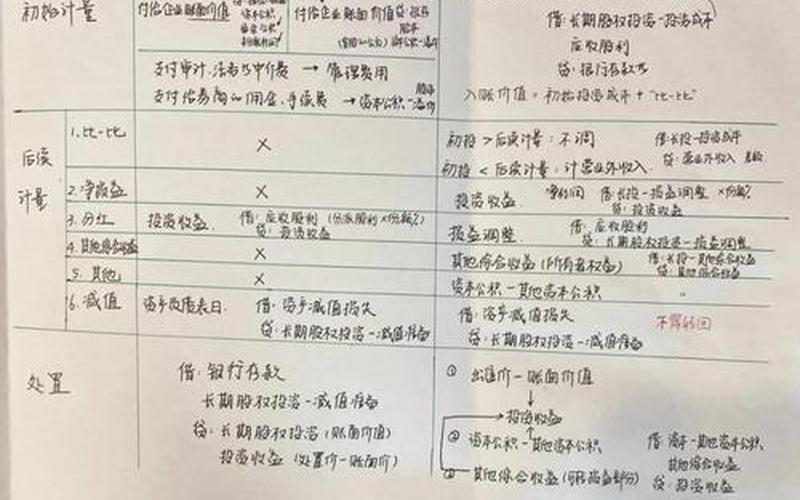 初始计量
付给企业账面价值
付给企业账面价值
支付审计、法务等中介费 → 管理费用
支付给券商的佣金、手续费 → 资本公积-溢价
借:长期股权投资-投资成本
应收股利
贷:银行存款等
入账价值=初始投资成本+"比一比"
后续计量
1.比一比
×
初投>后续计量:不调
初投<后续计量:计营业外收入
借:长投-投资成本
贷:营业外收入
2.净损益
×
投资收益
净利润
借:长投-损益调整
贷:投资收益
3.分红
投资收益
借:应收股利
贷:投资收益
损益调整
借:应收股利
贷:长期股权投资-损益调整
4.其他综合收益
×
其他综合收益(所有者权益)
借:长投-其他综合收益
贷:其他综合收益
5.其他
×
资本公积-其他资本公积
〃
6.减值
资产负债表日
借:资产减值损失
贷:长期股权投资-减值准备
借:资产减值损失
贷:长期股权投资-减值准备
不得转回
处置
借:银行存款
长期股权投资-减值准备
贷:长期股权投资(账面价值)
投资收益(处置价-账面价)
① 出售价-账面价值
↓
投资收益
② 资本公积-其他资本公积
借:资本-其他资本公积
其他综合收益
贷:投资收益
③ 其他综合收益(可转损益部分)